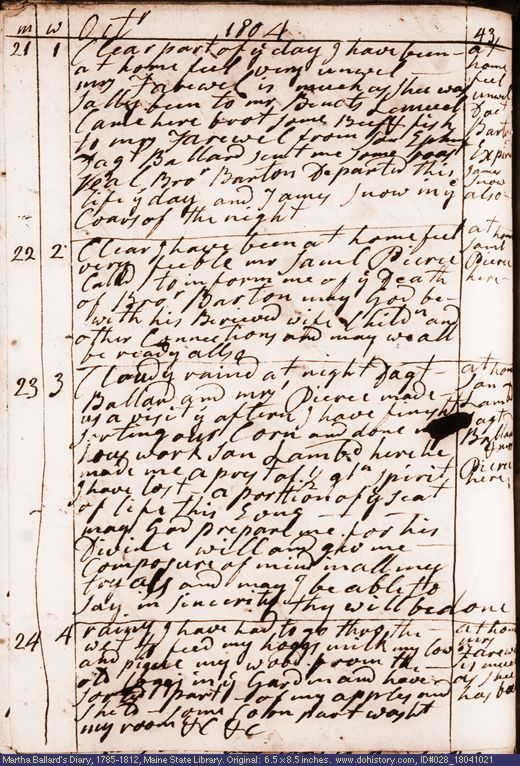 m w Octr 1804 43
21 1 Clear part of ye day I have been
at home feel very unwel
mrs Farewel is much as shee was
Sally been to mr Lemuel
Came here brot some Beiff fish
to mrs Farewel from Son Ephm
Dagt Ballard sent me some
Veal Bror Barton Departed this
life ys day and James Snow in ye
Coars of the night
at
home
feel
unwel
Bartn
Expird
James
Snow
also
22 2 Clear I have been at home feel
very feeble mr Saml Pierce
Calld to inform me of ye Death
of Bror Barton may God be
with his Bereved wife Childn and
other Connections and may we all
be ready allso
at home
Saml
Pierce
here
23 3 Cloudy raind at night Dagt
Ballard and mrs Pierce made
us a visit ys aftern I have finisht
sorting our Corn and done
Jous work Son Lambd here he
made me a prest of 1/2 galn spirit
I have lost a portion of ye Seat
of life this
may God prepare me for his
Divine will and give me
Composure of mind in all my
tryals and may I be able to
say in sincerity thy will be done
at home
Son
Lambd
Dagt
Ballard
& mrs
Pierce
here
24 4 rainy I have had to go thro the
wet to feed my hogg milk my cow
and pique my wood from the
old loggs in ye Gardin and have
sorted part of my apples and
my room &C &C
at home
mrs
Farewel
is much
as shee
has been
Martha Ballard's Diary, 1785-1812, Maine State Library. Original: 6.5 x 8.5 inches. www.dohistory.com, ID#028_18041021